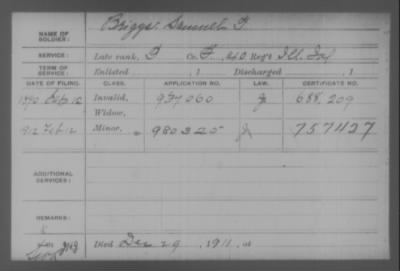 NAME OF SOLDIER: Briggs, Samuel F.
SERVICE: Late rank, P Co. F, 40 Reg't Ill. Inf
TERM OF SERVICE: Enlisted , 1 Discharged , 1
DATE OF FILING. CLASS. APPLICATION NO. LAW. CERTIFICATE NO.
1890 Sep. 12 Invalid, 937060 J 688,209
Widow,
1912 Feb 12 Minor, 980325 J 757427
ADDITIONAL SERVICES:
REMARKS:
Died Dec 29, 1911, at